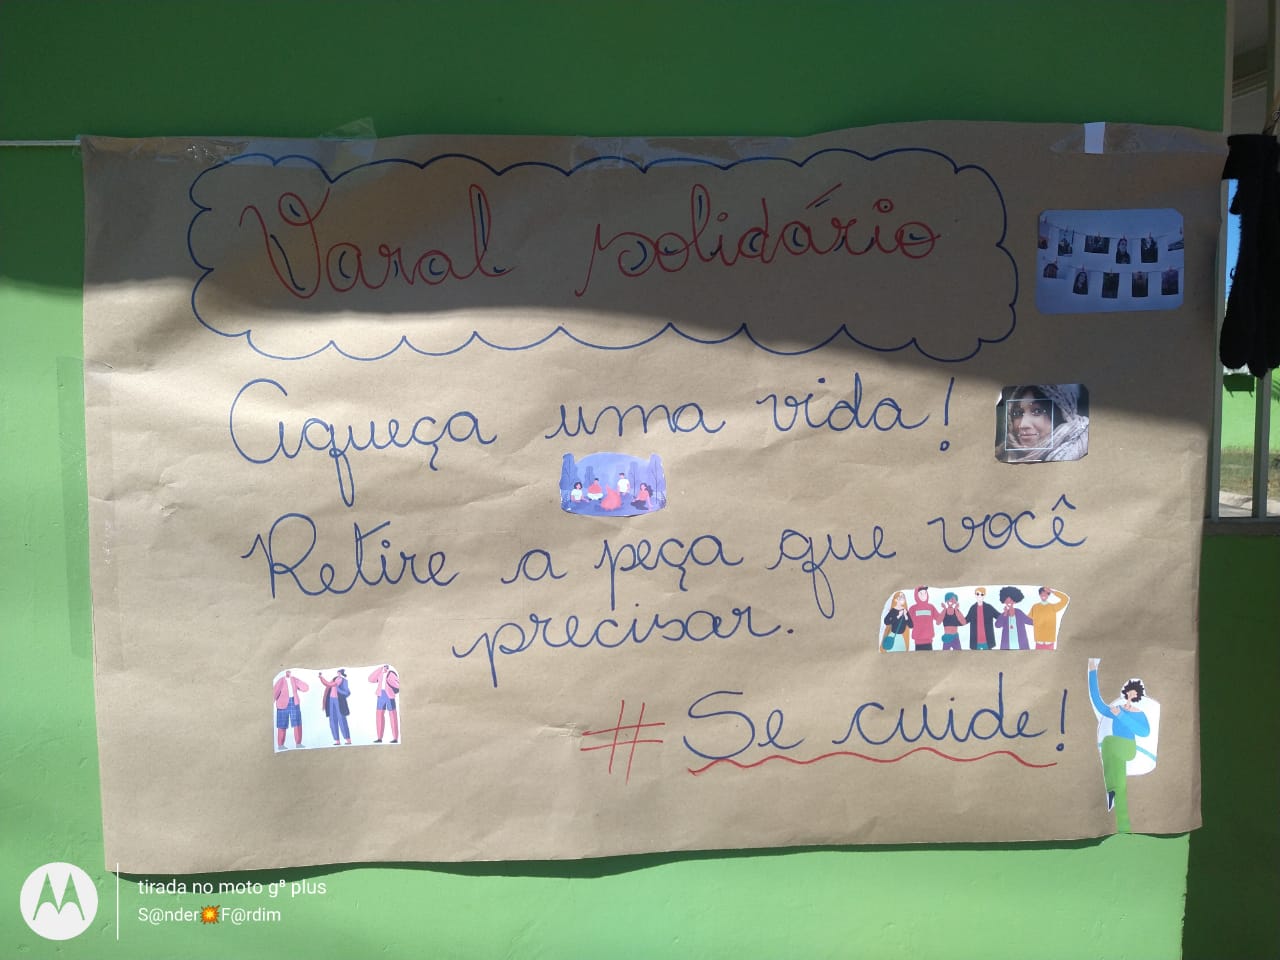 Varal solidário
Aqueça uma vida!
Retire a peça que você
precisar.
# Se cuide!
tirada no moto g⁸ plus
S@nder💥F@rdim